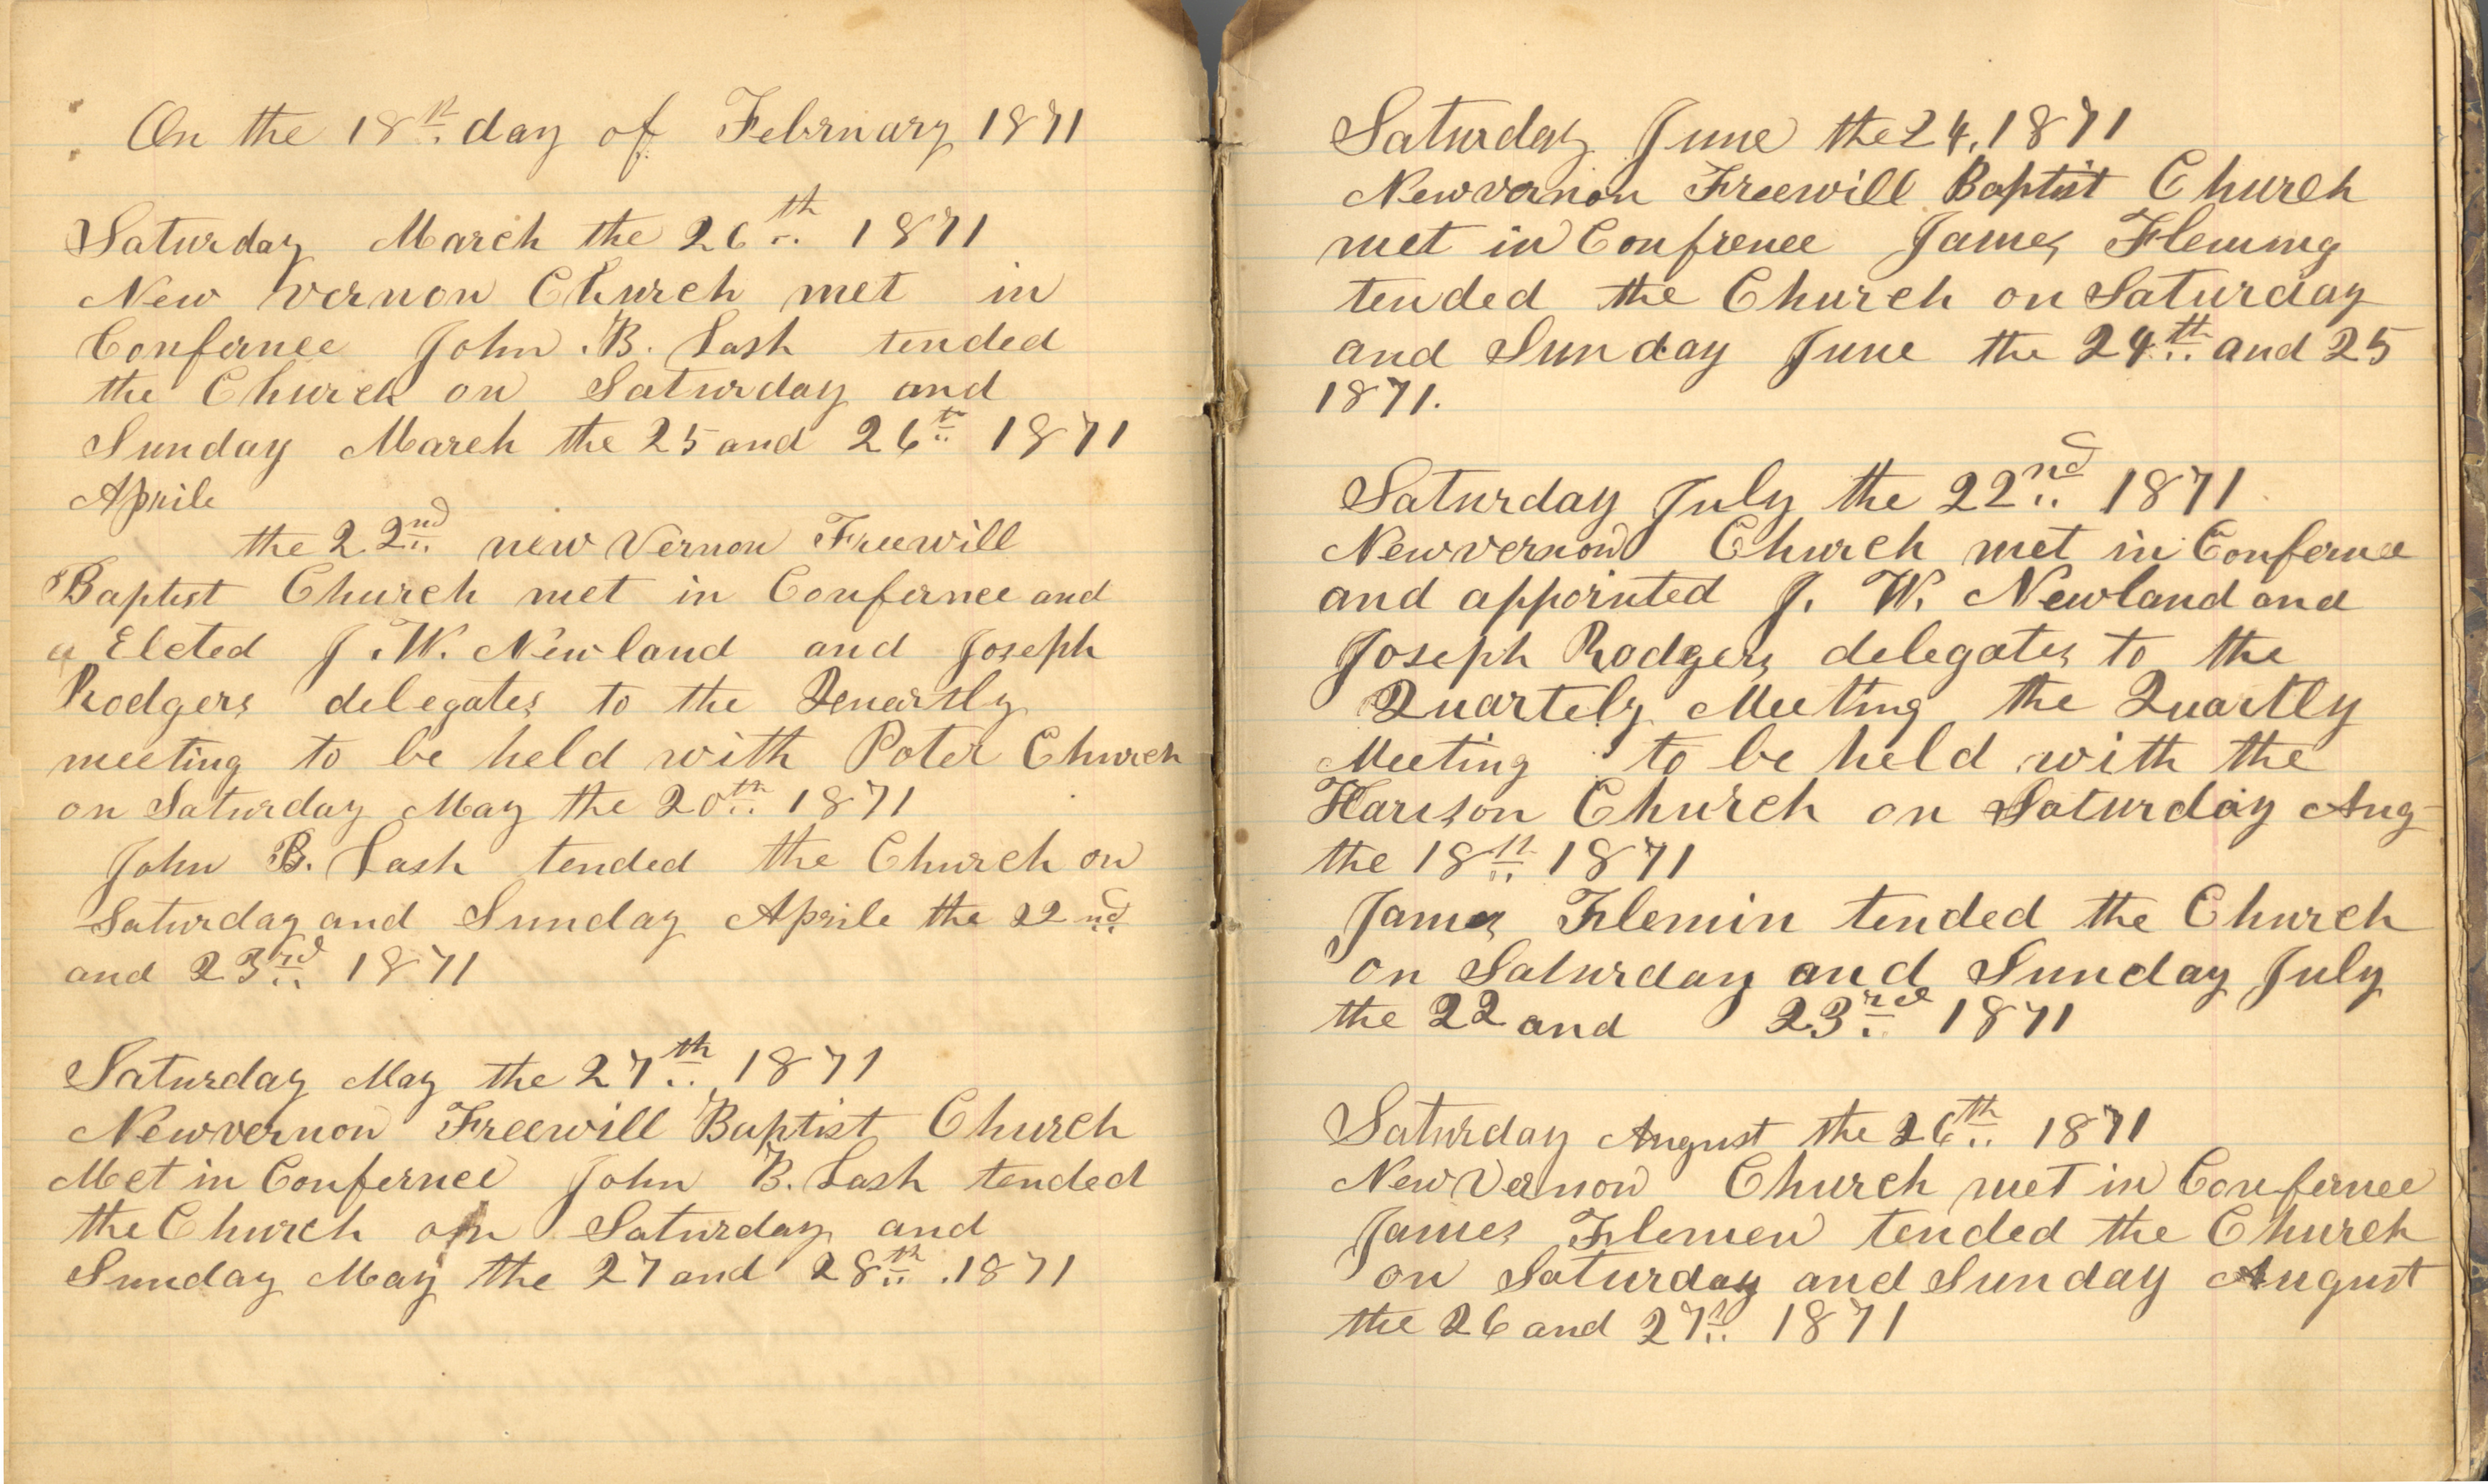 On the 18th day of February 1871
Saturday March the 26th 1871
New vernon Church met in
Confernce John B. Lash tended
the Church on Saturday and
Sunday March the 25 and 26th 1871
Aprile
the 22nd new Vernon Freewill
Baptist Church met in Confernce and
Elcted J. W. Newland and Joseph
Rodgers delegates to the Quartly
meeting to be held with Poter Church
on Saturday May the 20th 1871
John B. Lash tended the Church on
Saturday and Sunday Aprile the 22nd
and 23rd 1871
Saturday May the 27th 1871
Newvernon Freewill Baptist Church
Met in Confernce John B. Lash tended
the Church on Saturday and
Sunday May the 27 and 28th 1871
Saturday June the 24, 1871
Newvernon Freewill Baptist Church
met in Confrence James Fleming
tended the Church on Saturday
and Sunday June the 24th and 25
1871.
Saturday July the 22nd 1871
Newvernon Church met in Confernce
and appointed J. W. Newland and
Joseph Rodgers delegates to the
Quartely Meeting the Quartly
Meeting to be held with the
Harison Church on Saturday Aug
the 18th 1871
James Flemin tended the Church
on Saturday and Sunday July
the 22 and 23rd 1871
Saturday August the 26th 1871
New Vernon Church met in Confernce
James Flemen tended the Church
on Saturday and Sunday August
the 26 and 27th 1871